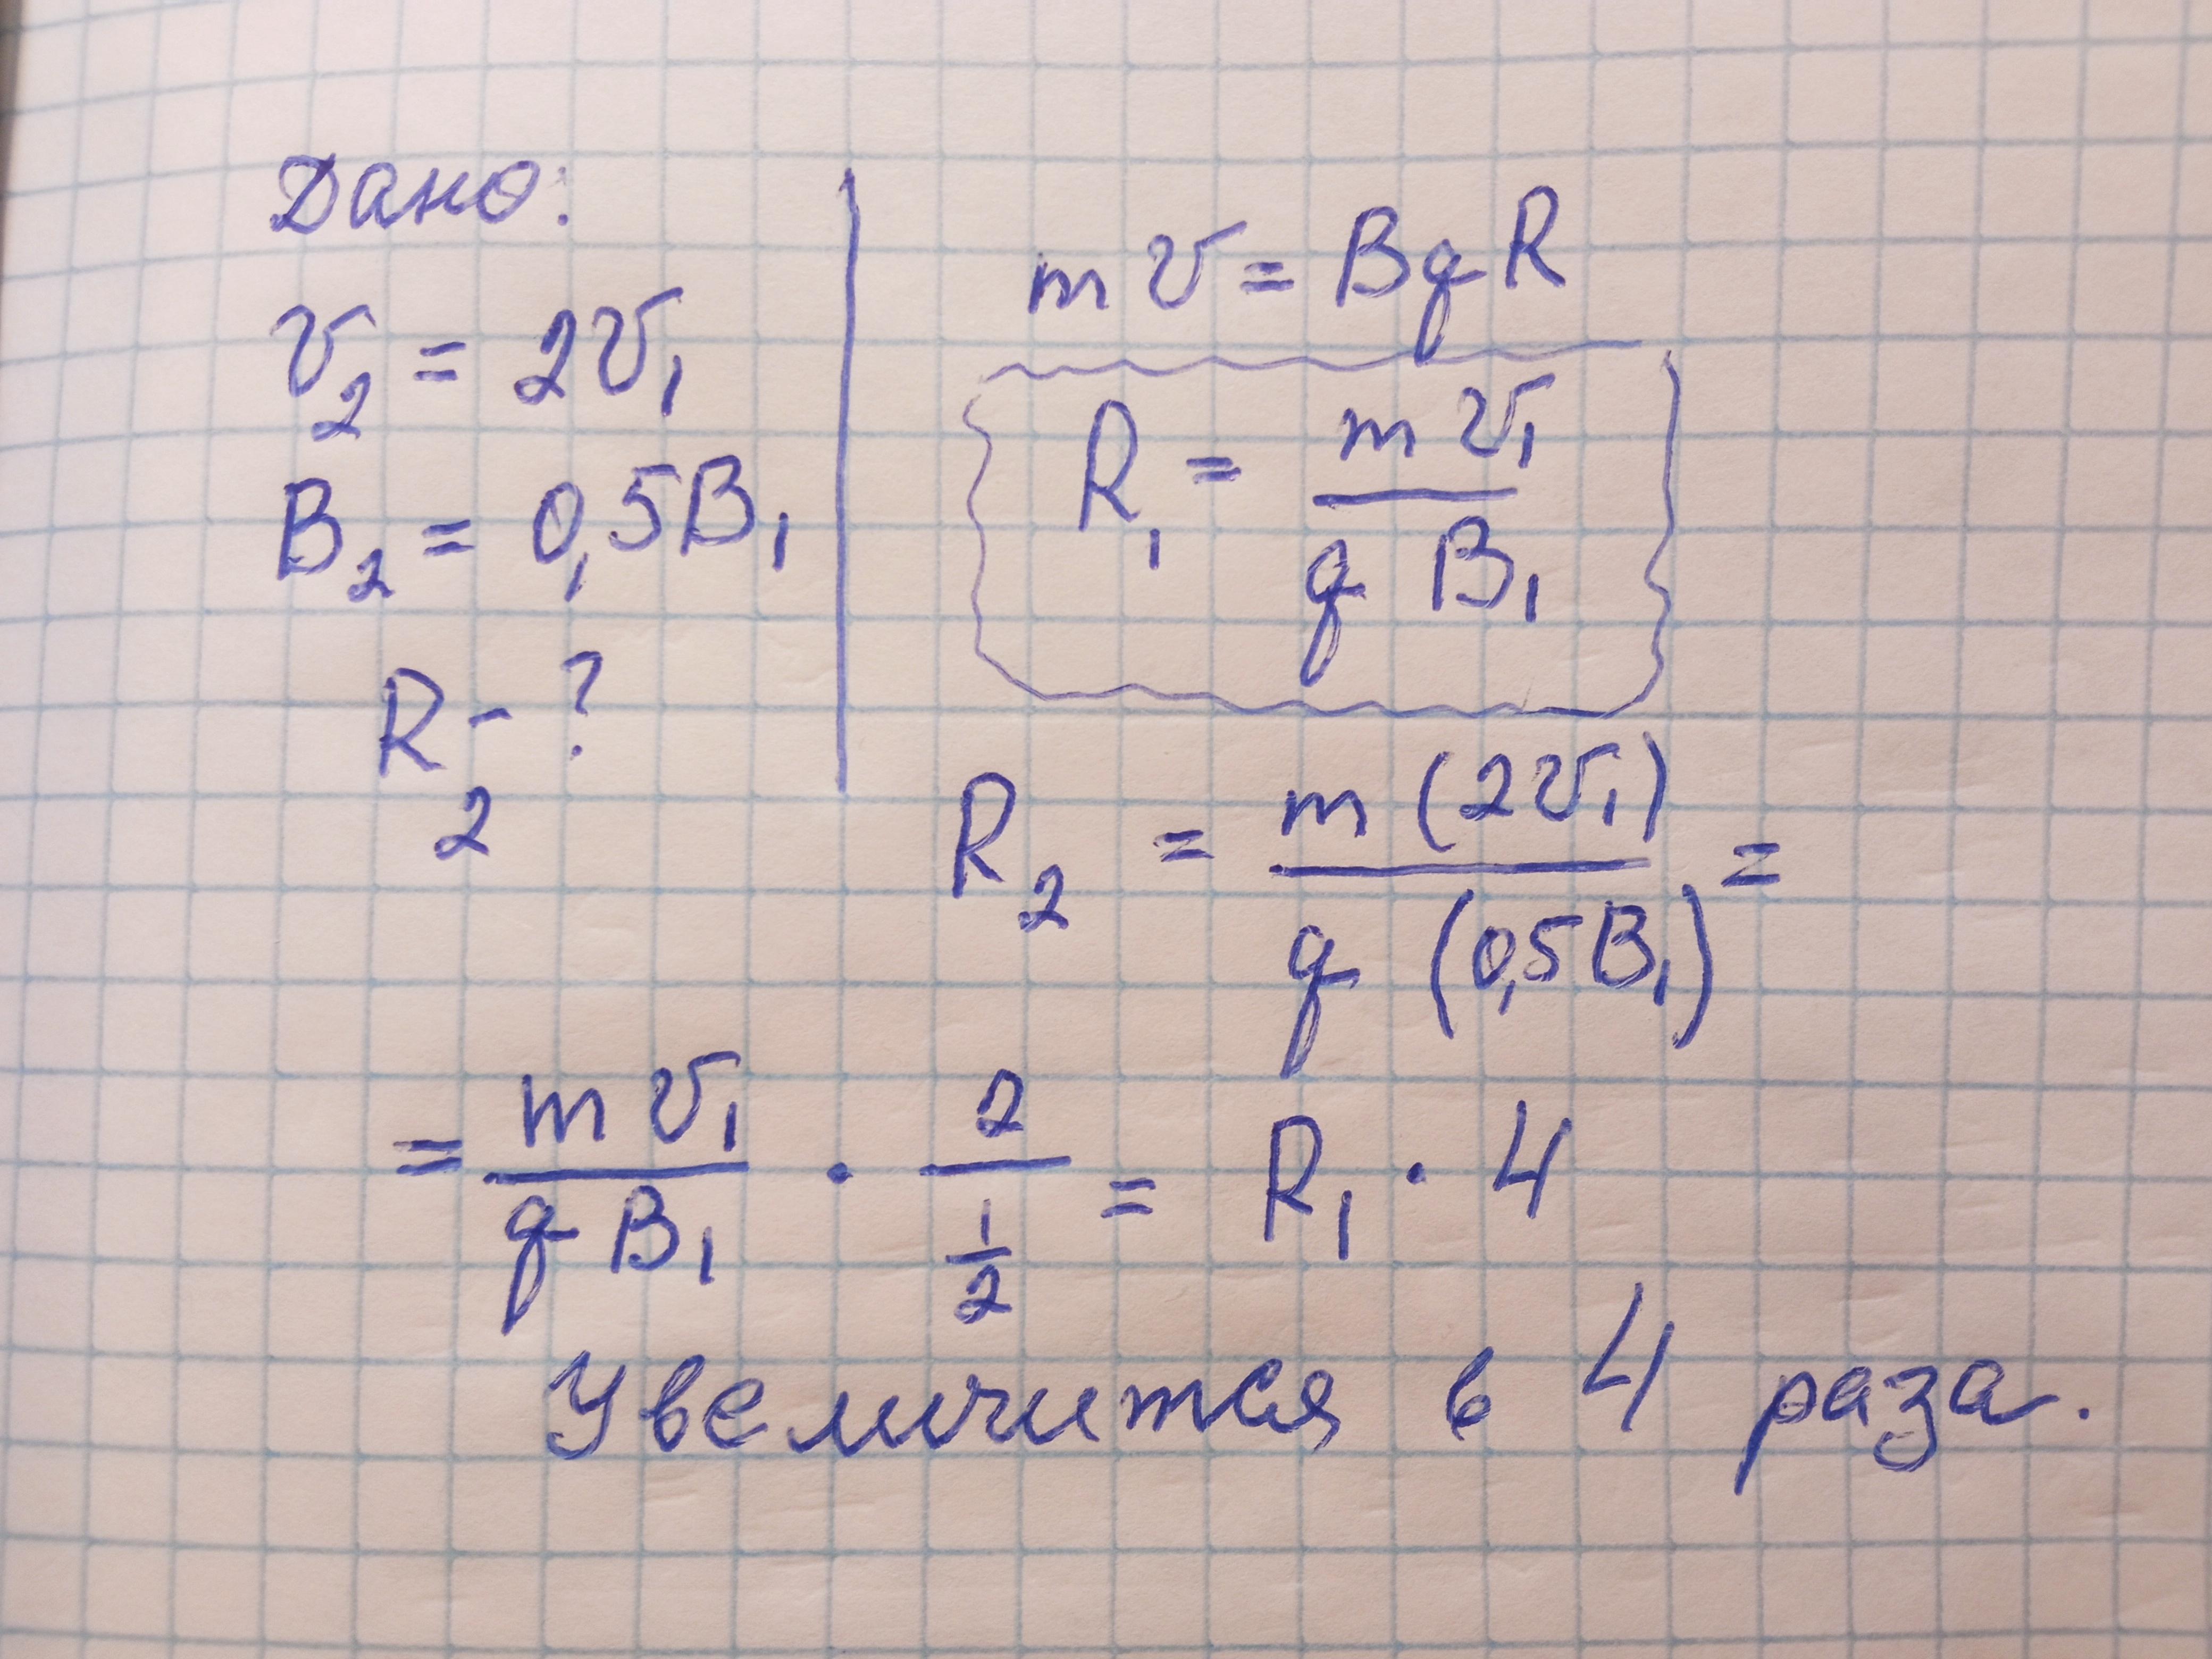 Дано:
υ₂ = 2υ₁
B₂ = 0,5B₁
R₂ - ?
mυ = BqR
R₁ = mυ₁ / qB₁
R₂ = m(2υ₁) / q(0,5B₁) =
= mυ₁ / qB₁ · 2 / ½ = R₁ · 4
Увеличится в 4 раза.